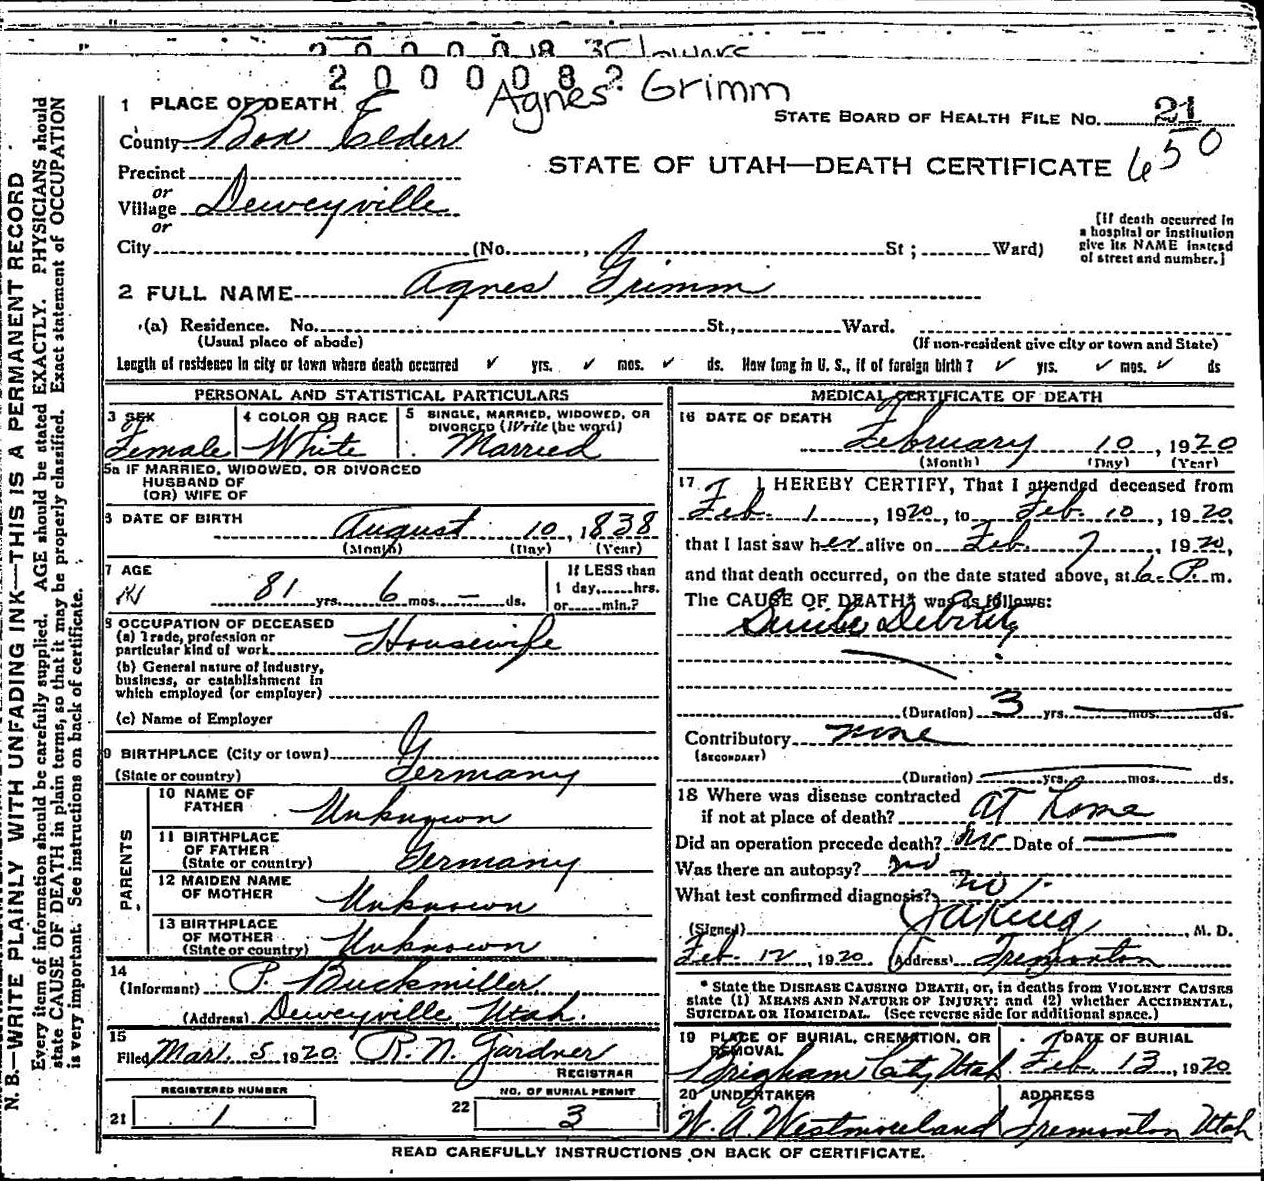 2000082
Agnes Grimm
1 PLACE OF DEATH
STATE BOARD OF HEALTH FILE NO. 21
County Box Elder
650
STATE OF UTAH—DEATH CERTIFICATE
Precinct
or
Village Deweyville
or
City (No. , St ; Ward)
[If death occurred in
a hospital or institution
give its NAME instead
of street and number.]
2 FULL NAME Agnes Grimm
(a) Residence. No. St., Ward.
(Usual place of abode)
(If non-resident give city or town and State)
Length of residence in city or town where death occurred ✓ yrs. ✓ mos. ✓ ds. How long in U. S., if of foreign birth? ✓ yrs. ✓ mos. ✓ ds
PERSONAL AND STATISTICAL PARTICULARS
3 SEX Female
4 COLOR OR RACE White
5 SINGLE, MARRIED, WIDOWED, OR
DIVORCED (Write the word)
Married
5a IF MARRIED, WIDOWED, OR DIVORCED
HUSBAND OF
(OR) WIFE OF
6 DATE OF BIRTH
August 10, 1838
(Month) (Day) (Year)
7 AGE
81 yrs. 6 mos. — ds.
If LESS than
1 day, hrs.
or min.?
8 OCCUPATION OF DECEASED
(a) Trade, profession or
particular kind of work Housewife
(b) General nature of industry,
business, or establishment in
which employed (or employer)
(c) Name of Employer
9 BIRTHPLACE (City or town)
(State or country) Germany
PARENTS
10 NAME OF
FATHER Unknown
11 BIRTHPLACE
OF FATHER
(State or country) Germany
12 MAIDEN NAME
OF MOTHER Unknown
13 BIRTHPLACE
OF MOTHER
(State or country) Unknown
14
(Informant) P. Buckmiller
(Address) Deweyville Utah.
15
Filed Mar. 5 1920 R. N. Gardner
REGISTRAR
REGISTERED NUMBER
21 1
NO. OF BURIAL PERMIT
22 3
MEDICAL CERTIFICATE OF DEATH
16 DATE OF DEATH
February 10, 1920
(Month) (Day) (Year)
17 I HEREBY CERTIFY, That I attended deceased from
Feb. 1, 1920, to Feb. 10, 1920,
that I last saw her alive on Feb. 7, 1920,
and that death occurred, on the date stated above, at 6 P. m.
The CAUSE OF DEATH* was as follows:
Debility
(Duration) 3 yrs. mos. ds.
Contributory none
(SECONDARY)
(Duration) yrs. mos. ds.
18 Where was disease contracted
if not at place of death? at home
Did an operation precede death? no Date of
Was there an autopsy? no
What test confirmed diagnosis? no
(Signed) , M. D.
Feb. 12, 1920 (Address) Tremonton
* State the DISEASE CAUSING DEATH, or, in deaths from VIOLENT CAUSES
state (1) MEANS AND NATURE OF INJURY; and (2) whether ACCIDENTAL,
SUICIDAL OR HOMICIDAL. (See reverse side for additional space.)
19 PLACE OF BURIAL, CREMATION, OR
REMOVAL
Brigham City, Utah
DATE OF BURIAL
Feb 13, 1920
20 UNDERTAKER
W. A. Westmoreland
ADDRESS
Tremonton Utah
READ CAREFULLY INSTRUCTIONS ON BACK OF CERTIFICATE.
N. B.—WRITE PLAINLY WITH UNFADING INK—THIS IS A PERMANENT RECORD
Every item of information should be carefully supplied. AGE should be stated EXACTLY. PHYSICIANS should
state CAUSE OF DEATH in plain terms, so that it may be properly classified. Exact statement of OCCUPATION
is very important. See instructions on back of certificate.